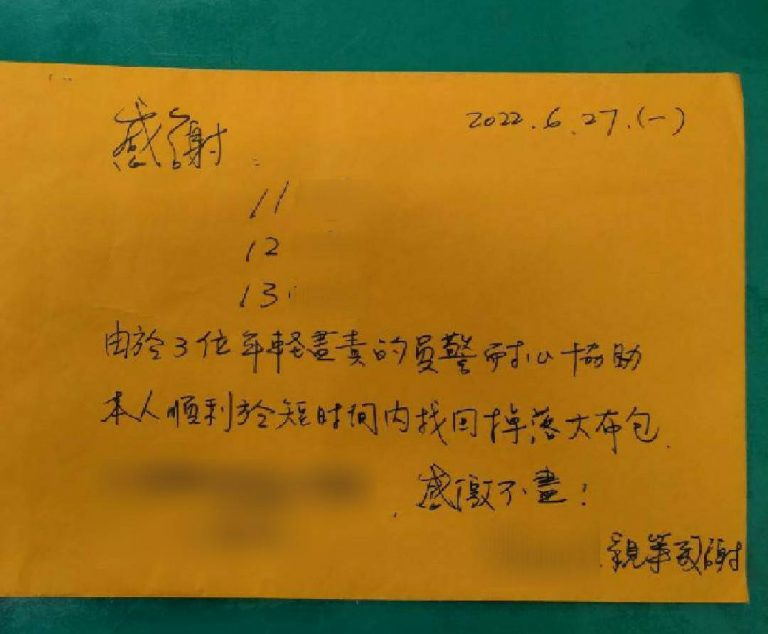 感謝：
2022.6.27.(一)
11
12
13.
由於3位年輕盡責的員警耐心協助
本人順利於短时间内找回掉落大布包.
感激不盡!
親筆致謝